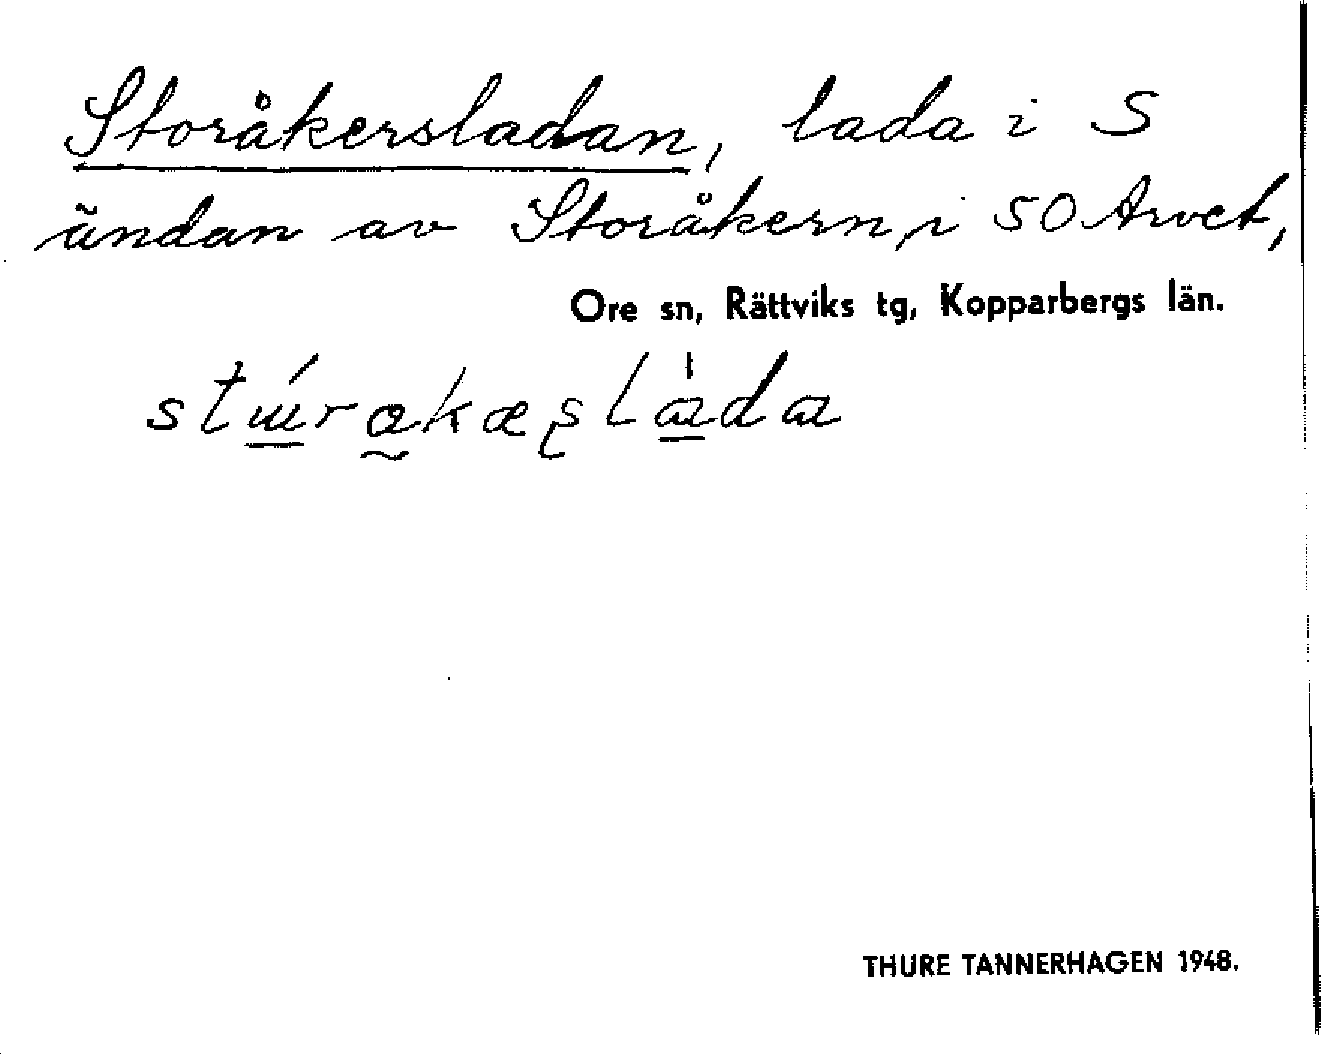 Storåkersladan, lada i S
ändan av Storåkern, i SO Arvet,
Ore sn, Rättviks tg, Kopparbergs län.
THURE TANNERHAGEN 1948.